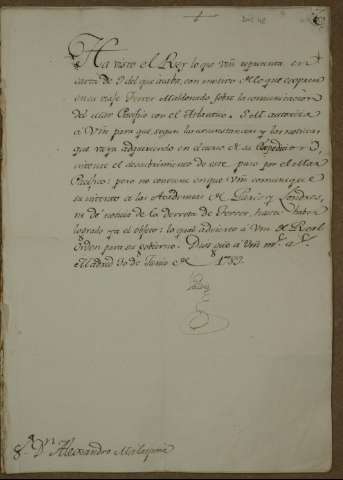 Ha visto el Rey lo que Vm representa en
carta de 9 del que acaba, con motivo de lo que
en su viaje Ferrer Maldonado sobre la comunicacion
del mar Pacifico con el Atlantico. S.M. autoriza
á Vm para que segun las circunstancias y las noticias
que vaya adquiriendo en el curso de su expedicion
intente el descubrimiento de este paso por el Mar
Pacifico: pero no conviene en que Vm comunique
su intento á las Academias de Paris y Londres,
ni dé noticia de la derrota de Ferrer, hasta haber
logrado ya el objeto: lo qual advierto á Vm de Real
Orden para su gobierno. Dios gue á Vm ms as.
Madrid 30 de Junio de 1789.
Valdes
Sr. Dn. Alexandro Malaspina